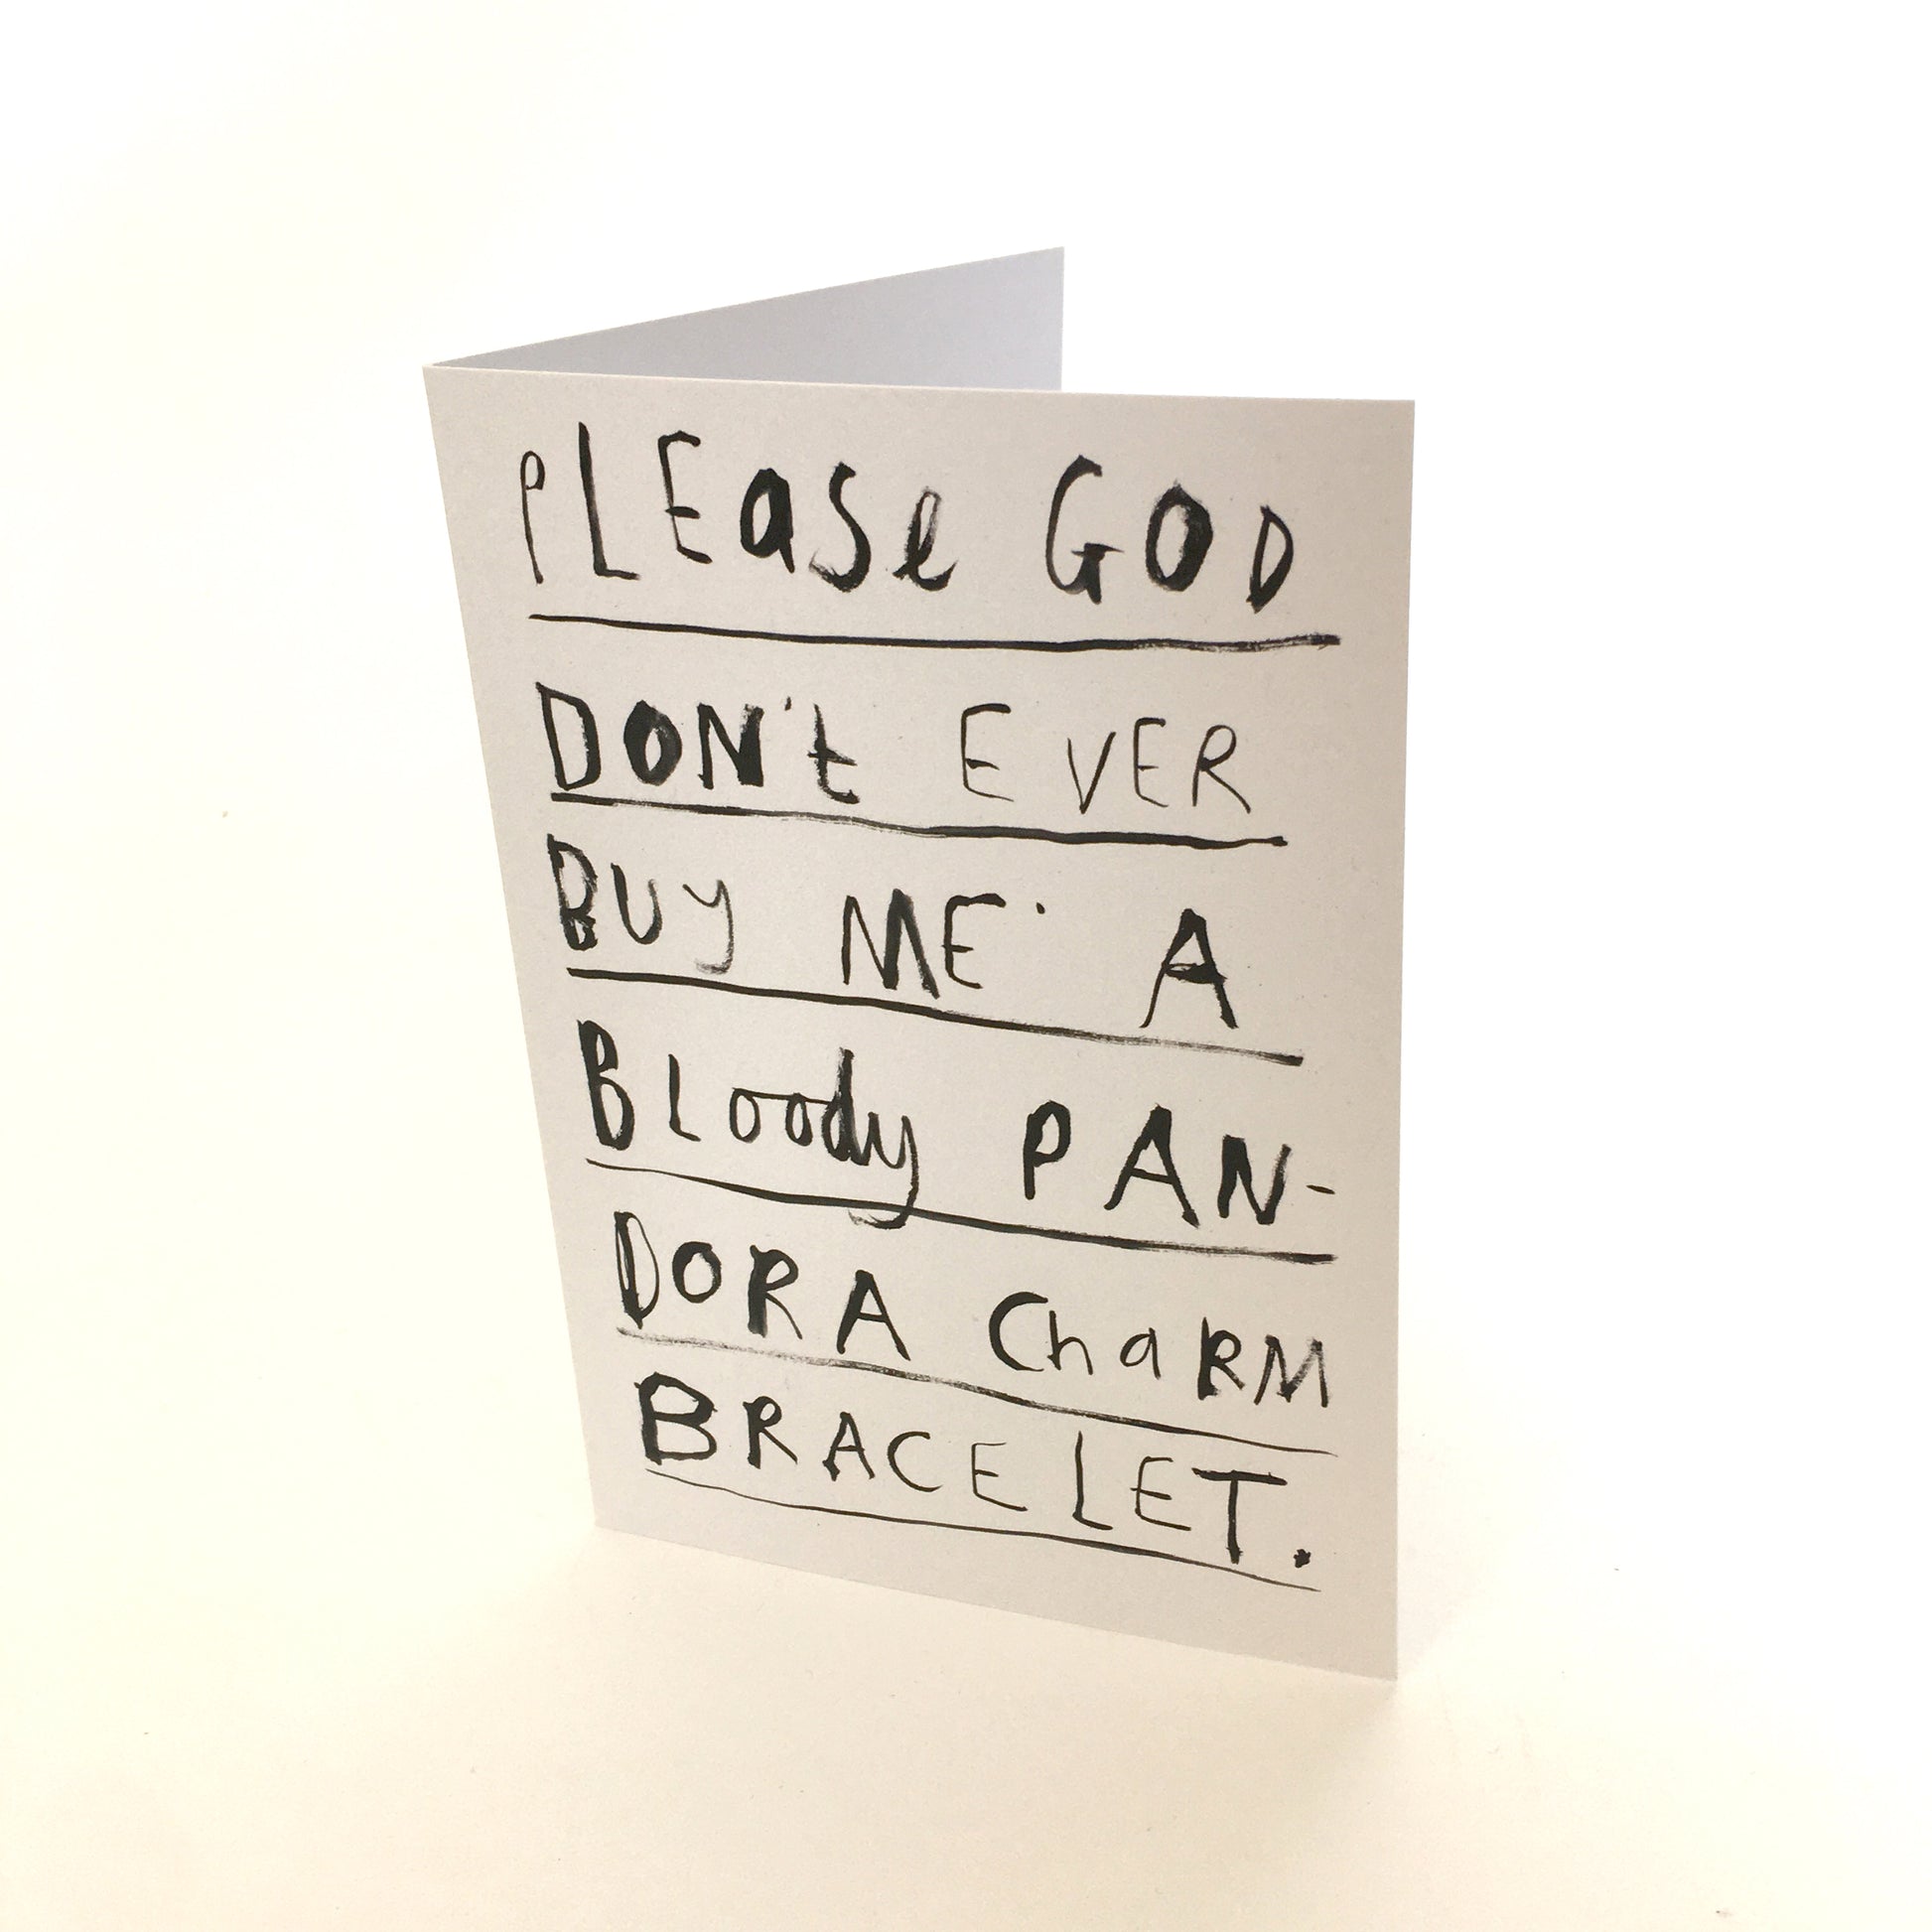 PLEase GOD
DON't EVER
BUy ME A
BLoody PAN-
DORA ChaRM
BRACELET.